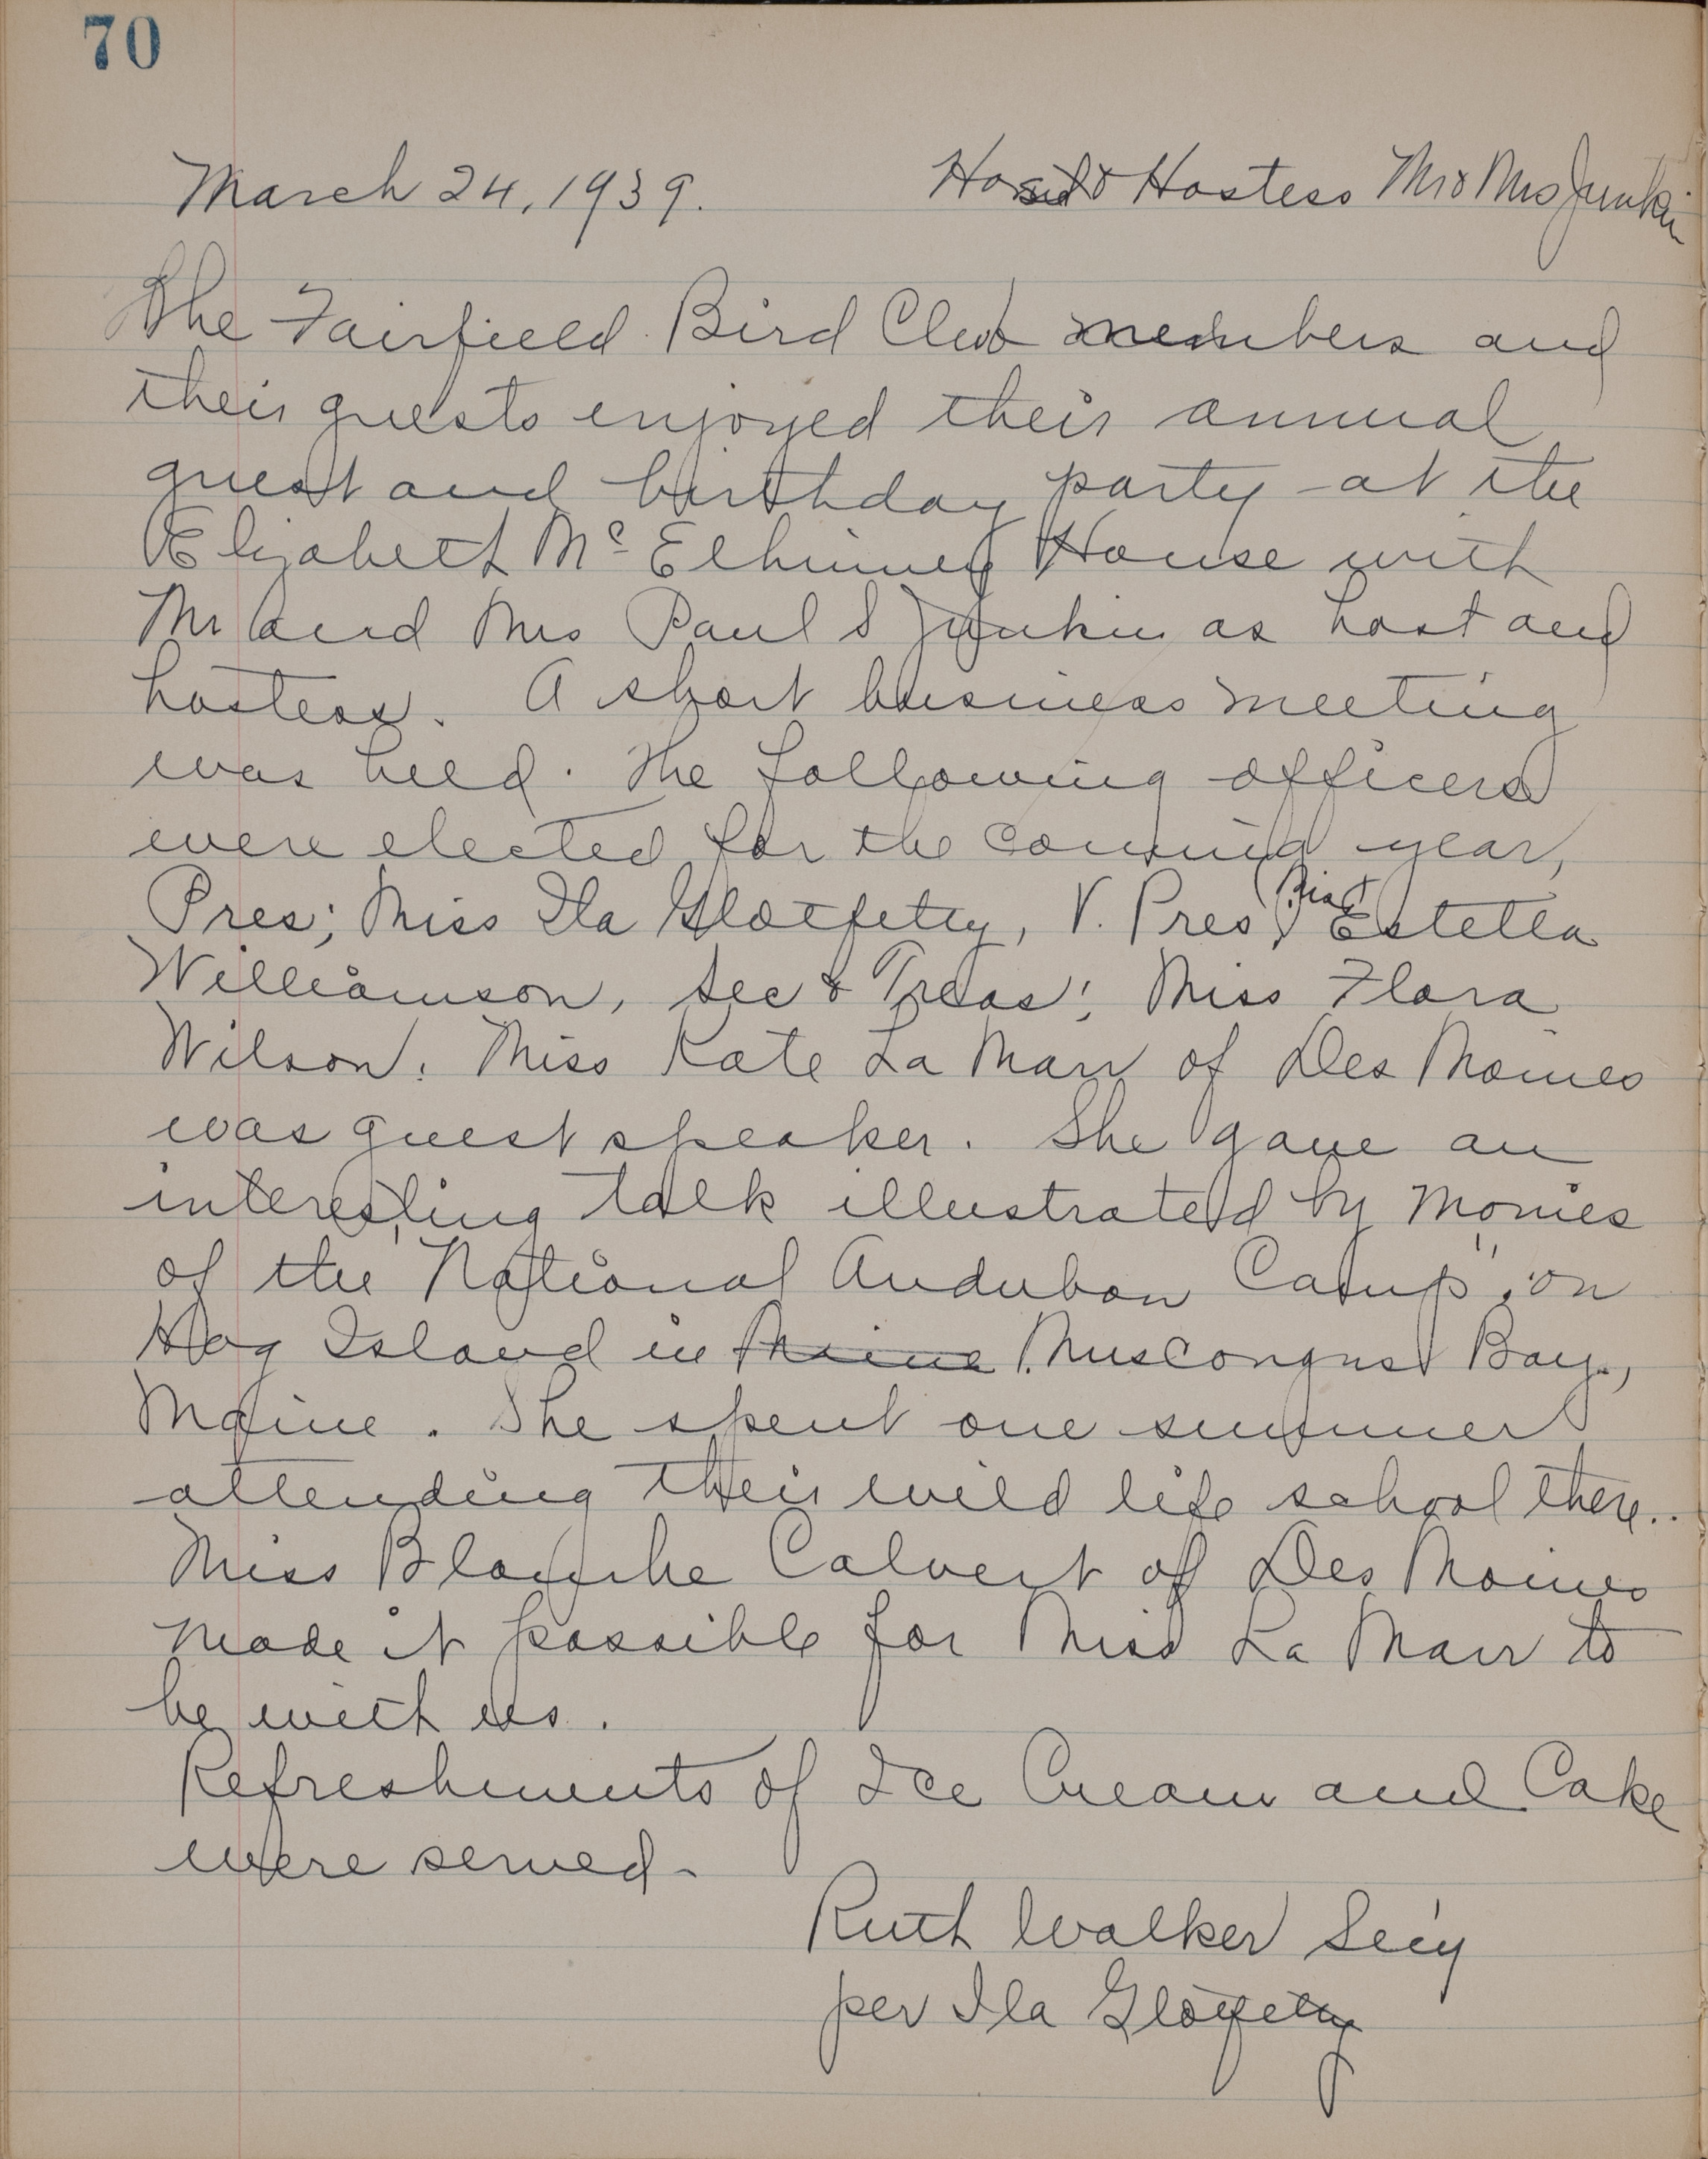 70
March 24, 1939. Host & Hostess Mr & Mrs Junkin
The Fairfield Bird Club members and
their guests enjoyed their annual
guest and birthday party at the
Elizabeth Mc Elhinney House with
Mr and Mrs Paul S Junkin as host and
hostess. A short business meeting
was held. The following officers
were elected for the coming year,
Pres; Miss Ila Glotfelty, V. Pres; Estella
Williamson, Sec & Treas; Miss Flora
Wilson. Miss Kate La Marr of Des Moines
was guest speaker. She gave an
interesting talk illustrated by movies
of the "National Audubon Camp", on
Hog Island in Maine Muscongus Bay,
Maine. She spent one summer
attending their wild life school there..
Miss Blanche Calvert of Des Moines
made it possible for Miss La Marr to
be with us.
Refreshments of Ice Cream and Cake
were served.
Ruth Walker Sec'y
per Ila Glotfelty